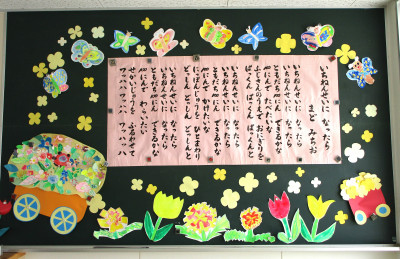 いちねんせいに なったら
まど みちお
いちねんせいに なったら
いちねんせいに なったら
ともだち100にん できるかな
100にんで たべたいな
ふじさんのうえで おにぎりを
ぱっくん ぱっくん ぱっくんと
いちねんせいに なったら
いちねんせいに なったら
ともだち100にん できるかな
100にんで かけたいな
にっぽんじゅうを ひとまわり
どっしん どっしん どっしんと
いちねんせいに なったら
いちねんせいに なったら
ともだち100にん できるかな
100にんで わらいたい
せかいじゅうを ふるわせて
ワッハハ ワッハハ ワッハッハ